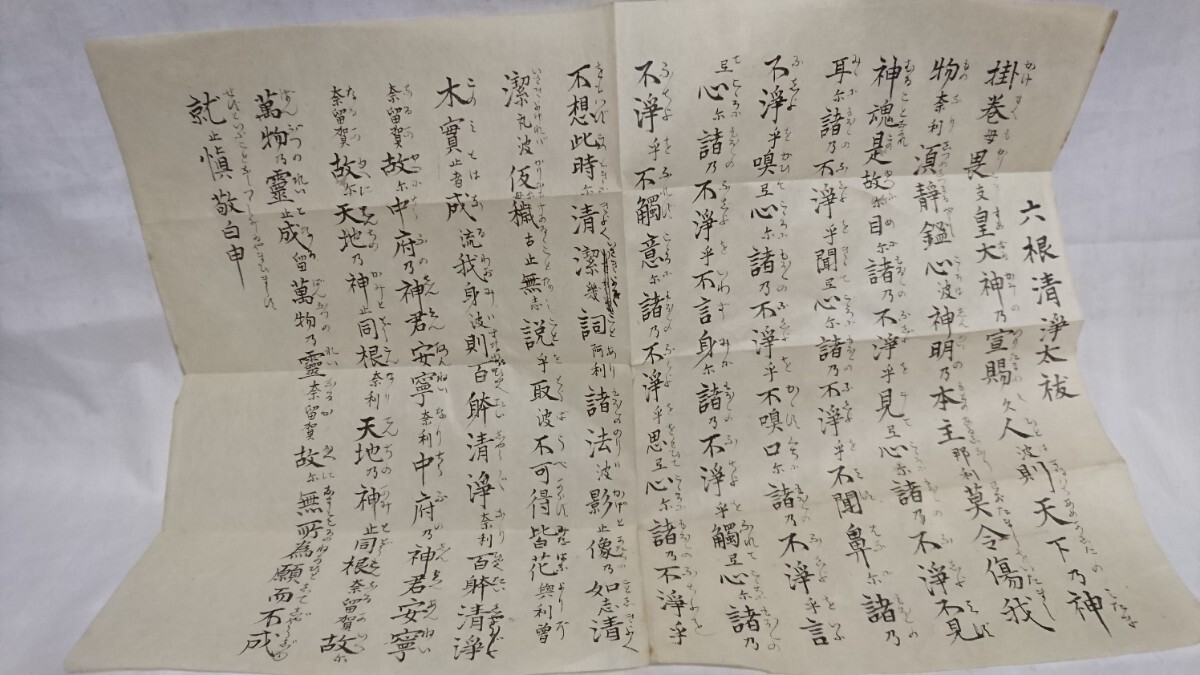 六根清淨太祓
掛巻毋畏支皇大神乃宣賜久人波則天下乃神
物奈利須靜鑑心波神明乃本主那利莫令傷我
神魂是故尓目尓諸乃不淨乎見弖心尓諸乃不淨不見
耳尓諸乃不淨乎聞弖心尓諸乃不淨乎不聞鼻尓諸乃
不淨乎嗅弖心尓諸乃不淨乎不嗅口尓諸乃不淨乎言
弖心尓諸乃不淨乎不言身尓諸乃不淨乎觸弖心尓諸乃
不淨乎不觸意尓諸乃不淨乎思弖心尓諸乃不淨乎
不想此時尓清潔幾詞阿利諸法波影止像乃如志清
潔礼波仮尓毋穢古止無志説乎取波不可得皆花與利曽
木實止者成流我身波則百躰清淨奈利百躰清淨
奈留賀故尓中府乃神君安寧奈利中府乃神君安寧
奈留賀故尓天地乃神止同根奈利天地乃神止同根奈留賀故尓
萬物乃靈止成留萬物乃靈奈留賀故尓無所為願而不成
就止慎敬白申